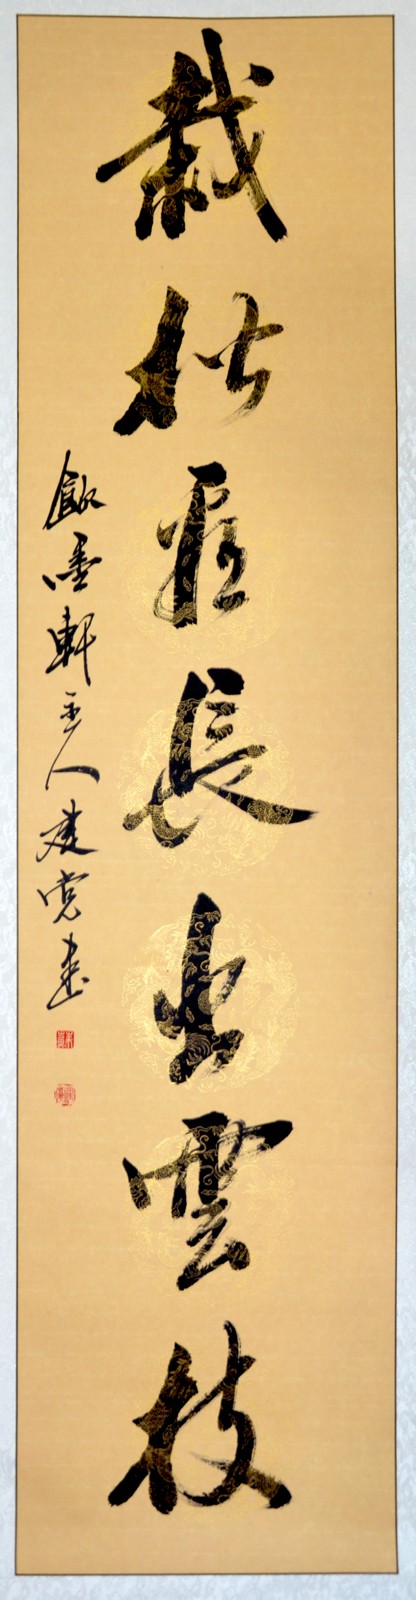 栽松應長出雲枝
飲墨軒主人建党書